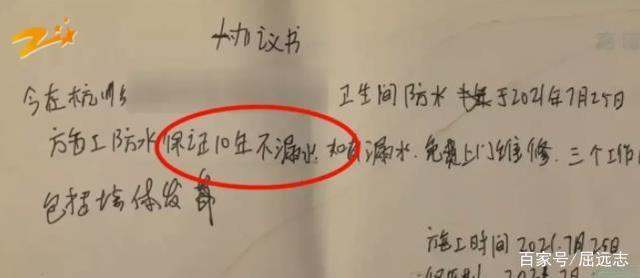 协议书
今在杭州 卫生间防水 于2021年7月25日
施工防水保证10年不漏水.如有漏水.免费上门维修.三个工作
包括墙体发霉
施工时间2021.7月25
百家号/屈远志